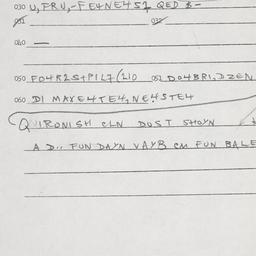 030 U, FRU,-FE4NE4S2 QED
031 032
040
050 FO4R2S+PIL7(210 052 DO4BRI,DZEN
060 DI MAXE4TE4,NE4STE4
QUIRONISH CLN DUST SHOYN
A D.. FUN DAYN VAYB CM FUN BALE